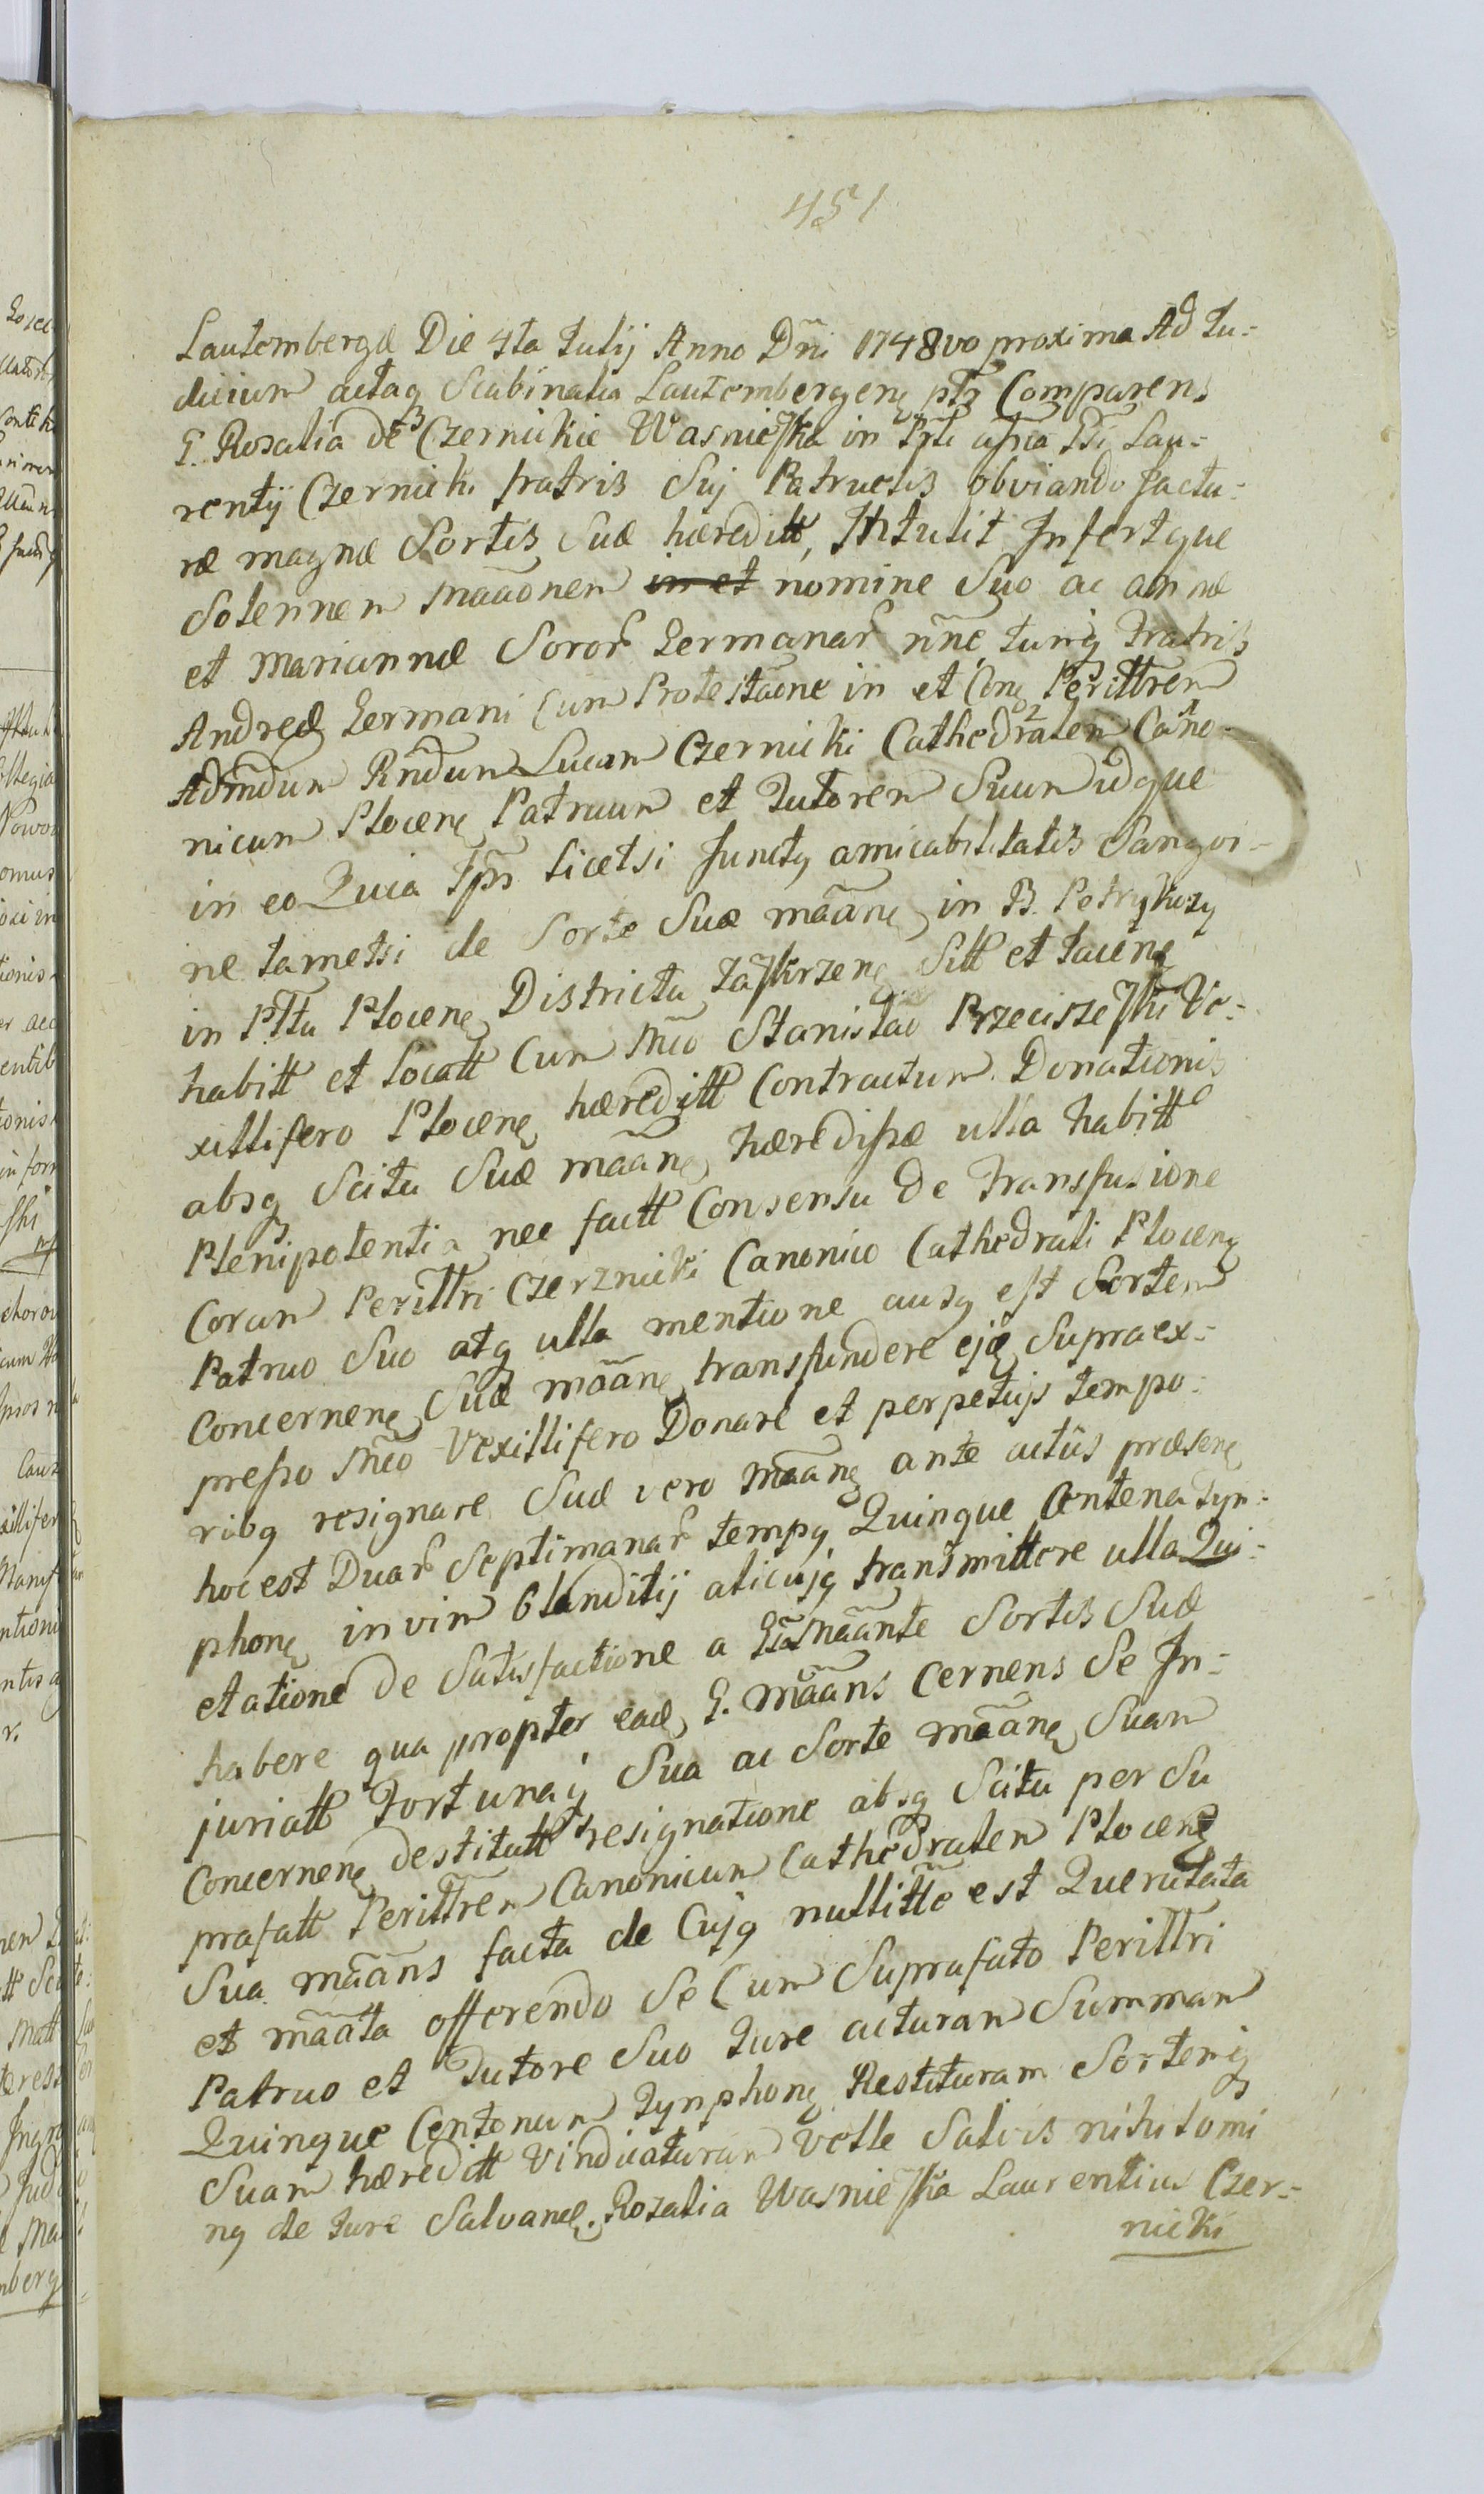 451
Lautembergæ Die 4ta Julij Anno Dñi 1748vo proxima Ad Ju-
dicium actaq Scabinalia Lautembergeñ ptr Comparens
G. Rosalia de Czernickie Wasnieska in Lau-
rentij Czernicki fratris Suj Patruelis obviando Jactu-
ræ magnæ Sortis Suæ hæreditt, Intulit Infertque
Solennem mããonem in et nomine Suo ac annæ
et Mariannæ Soror Germanar nñe tumq Fratris
Andreæ Germani Cum Protestãone in et Perilltrem
Admdum Rndum Lucam Czernicki Cathedralem Cano-
nicum Plocen Patruum et Tutorem Suum idque
in eo Quia licetsi Junctq amicabilitatis Sangvi-
ne tametsi de Sorte Suæ mããne in B. Petrykozy
in Plttu Plocen Districtu Zaskrzen Sitt et Jacen
habitt et locatt Cum Mco Stanislao Przeciszeski Ve-
xillifero Plocen hæreditt Contractum Donationis
absq Scitu Suæ mããne hæredissæ ulla habitt
Plenipotentia nec factt Consensu de transfusione
Coram Perilltri Czerznicki Canonico Cathedrali Plocen
Patruo Suo atq ulla mentione ausq est Sortem
Concernen Suæ mããne transfundere ejq Supraex-
presso Mco Vexillifero Donare et perpetujs tempo-
ribq resignare Suæ vero mããne ante actus præsen
hoc est Duar Septimanar tempq Quinque Centena Tym-
phon in vim blanditij alicujq transmittere ulla Qui-
etatione de Satisfactione a mããnte Sortis Suæ
habere qua propter ead G. mããns Cernens Se In-
juriatt Fortunaq Sua ac Sorte mããne Suam
Concernen destitutt resignatione absq Scitu per Su
præfatt Perilltrem Canonicum Cathedralem Plocen
Sua mããns facta de Cujq nullitte est Querulata
et mããta offerendo Se Cum Suprafato Perilltri
Patruo et Tutore Suo Jure acturam Summam
Quinque Centenam Tynphon Restituram Sortemq
Suam hæreditt Vindicaturam velle Salvis nihilomi
nq de Jure Salvand. Rozalia Wasnieska Laurentius Czer-
nicki